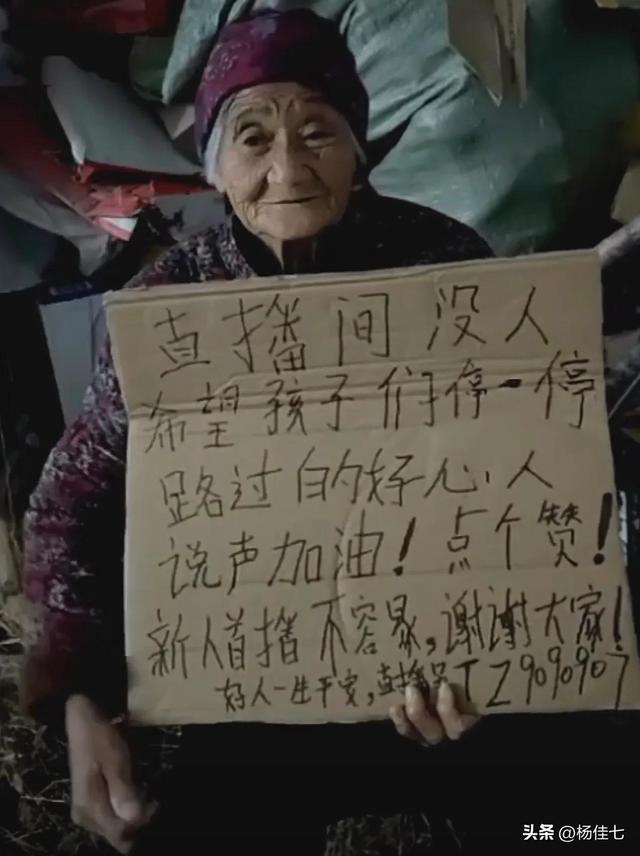 直播间没人
希望孩子们停一停
路过的好心人
说声加油！点个赞！
新人首播不容易，谢谢大家！
好人一生平安，直播号TZ9090907
头条 @杨佳七